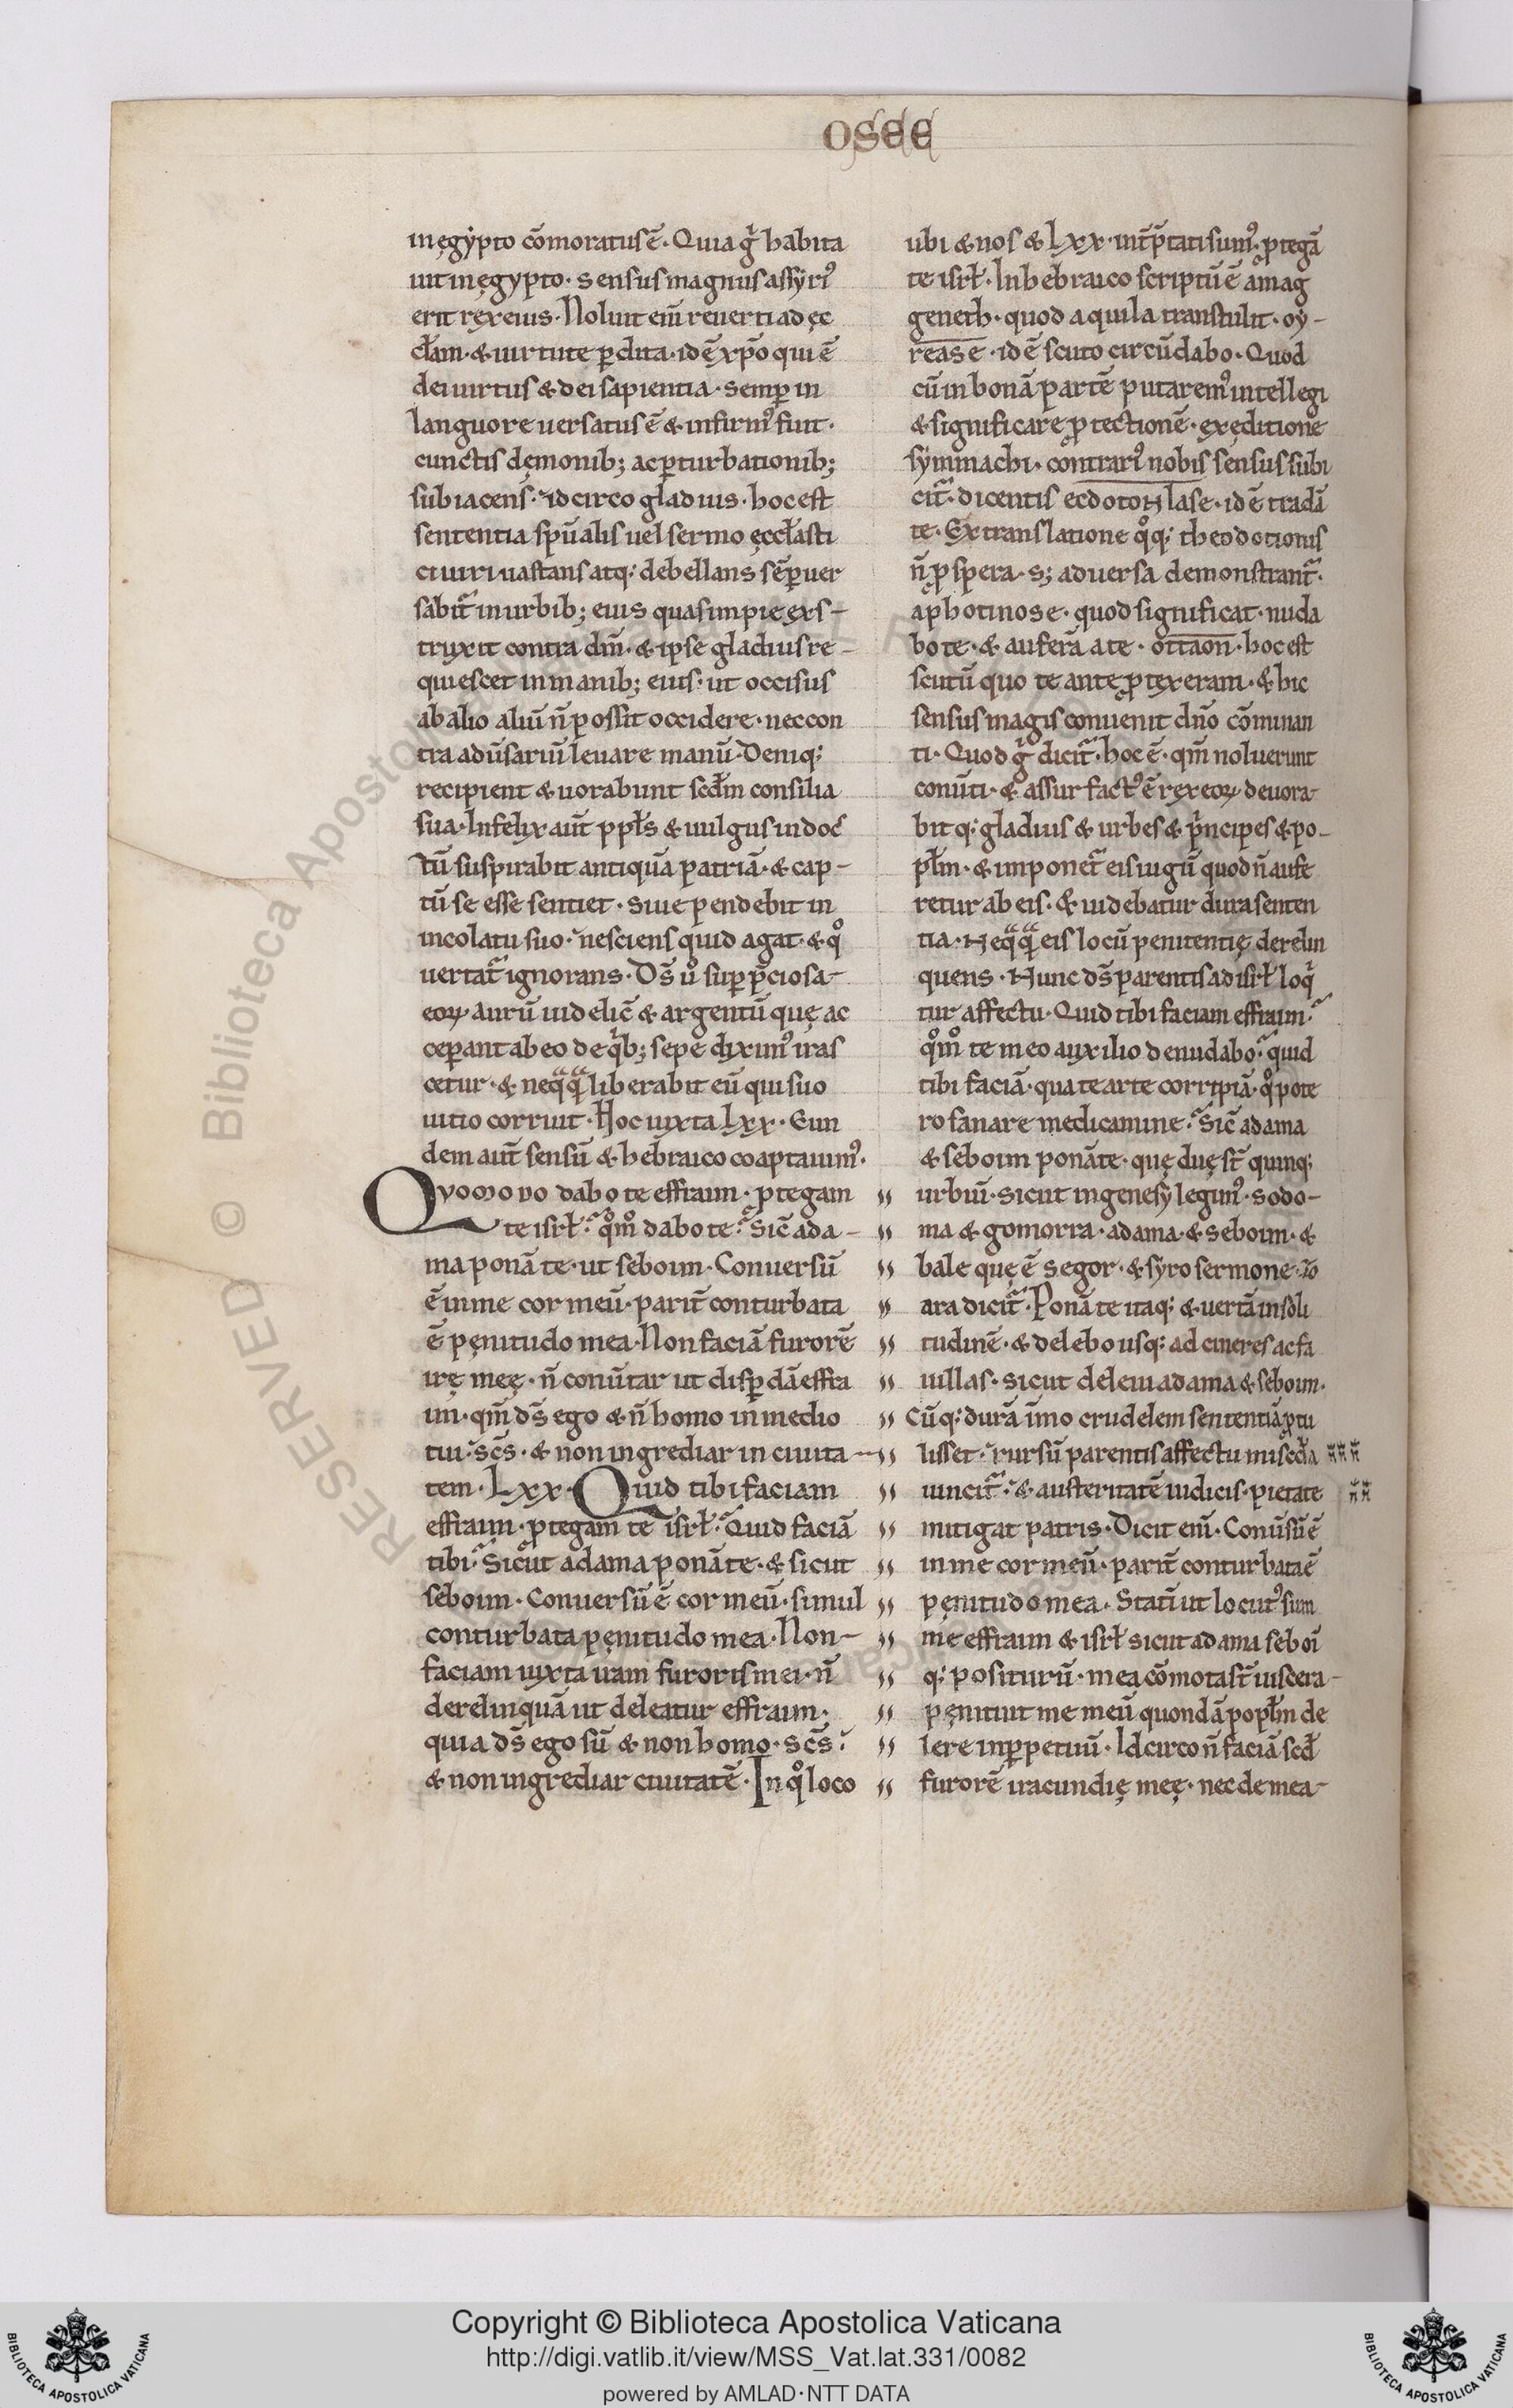 OSEE
in ęgypto cōmoratus ē. Quia gͥ habita
uit in ęgypto. sensus magnus assyriꝰ
erit rex eius. Noluit eni̅ reuerti ad ęc
cłam. & uirtute ꝑdita. id ē xp̅o qui ē
dei uirtus & dei sapientia. semꝑ in
languore uersatus ē & infirmꝰ fuit.
cunctis dęmonib; ac ꝑturbationib;
subiacens. idcirco gladius. hoc est
sententia sp̅ualis uel sermo ęccłasti
ci uiri uastans atq; debellans sēꝑ uer
sabit᷑ in urbib; eius quas impie exs-
truxit contra dm̅. & ipse gladius re-
quiescet in manib; eius. ut occisus
ab alio aliū n̅ possit occidere. nec con
tra adūsariū leuare manū. Deniq;
recipient & uorabunt scdm̅ consilia
sua. Infelix aut̅ ppłs & uulgus indoc
tū suspirabit antiquā patriā. & cap-
tū se esse sentiet. siue pendebit in
incolatu suo. nesciens quid agat. & qͦ
uertat᷑ ignorans. Ds̅ uͦ suꝑ p̅ciosa-
eoꝝ aurū uidelic̅ & argentū quę ac
ceꝑant ab eo de qͥb; sepe diximꝰ iras
cetur. & neqͣqͣ liberabit eū qui suo
uitio corruit. Hoc iuxta Lxx. Eun
dem aut̅ sensū & hebraico coaptauimꝰ.
Quomodo dabo te effraim. ꝓtegam
te isrł. qͦmͦ dabo te. Sic̅ ada-
ma ponā te. ut seboim. Conuersū
ē in me cor meū. parit̅ conturbata
ē pęnitudo mea. Non faciā furorē
irę meę. n̅ conūtar ut disꝑdā effra
im. qm̅ ds̅ ego & n̅ homo in medio
tui. sc̅s. & non ingrediar in ciuita-
tem. Lxx. Quid tibi faciam
effraim. ꝓtegam te isrł. Quid faciā
tibi. Sicut adama ponā te. & sicut
seboim. Conuersū ē cor meū. simul
conturbata pęnitudo mea. Non-
faciam iuxta iram furoris mei. n̅
derelinquā ut deleatur effraim.
quia ds̅ ego sū & non homo. sc̅s.
& non ingrediar ciuitatē. In qͦ loco
ubi & nos & Lxx. int̅p̅tati sumꝰ. ꝓtegā
te isrł. In hebraico scriptū ē amag
genech. quod aquila transtulit. oy-
rease. id ē scuto circūdabo. Quod
cū in bonā partē putaremꝰ intellegi
& significare ꝓtectionē. ex editione
symmachi. contrariꝰ nobis sensus subi
cit᷑. dicentis ecdotoHlase. id ē tradā
te. Ex translatione qͦq; theodotionis
n̅ ꝓspera. s; aduersa demonstrant᷑.
aphotinose. quod significat. nuda
bo te. & auferā a te. ottaon. hoc est
scutū quo te ante ꝓtexeram. & hic
sensus magis conuenit dn̅o cōminan
ti. Quod gͥ dicit᷑. hoc ē. qm̅ noluerunt
conūti. & assur factꝰ ē rex eoꝝ deuora-
bitq; gladius & urbes & pͥncipes & po-
płm. & imponet᷑ eis iugū quod n̅ aufe
retur ab eis. & uidebatur dura senten
tia. Neqͣqͣ eis locū penitentię derelin
quens. Nunc ds̅ parentis ad isrł loqͥ
tur affectu. Quid tibi faciam effraim.
qͦmͦ te meo auxilio denudabo. quid
tibi faciā. qua te arte corripiā. qͦ pote
ro sanare medicamine. Sic̅ adama
& seboim ponā te. quę duę st̅ quinq;
urbiū. sicut in genesy legimꝰ. sodo-
ma & gomorra. adama. & seboim. &
bale quę ē segor. & syro sermone zo
ara dicit᷑. Ponā te itaq; & uertā in soli
tudinē. & delebo usq; ad cineres ac fa
uillas. sicut deleui adama & seboim.
Cūq; durā īmo crudelem sententiā ꝓtu
lisset. rursū parentis affectu miscd̅ia
uincit᷑. & austeritatē iudicis. pietate
mitigat patris. Dicit eni̅. Conūsū ē
in me cor meū. parit̅ conturbata ē
pęnitudo mea. Statī ut locutꝰ sum
me effraim & isrł sicut adama seboī
q; positurū. mea cōmota st̅ uiscera-
pęnituit me meū quondā popłm de
lere in ꝑpetuū. Idcirco n̅ faciā scd̅
furorē iracundię meę. nec de mea-
RESERVED © Biblioteca Apostolica Vaticana
Copyright © Biblioteca Apostolica Vaticana
http://digi.vatlib.it/view/MSS_Vat.lat.331/0082
powered by AMLAD·NTT DATA
BIBLIOTECA APOSTOLICA VATICANA
BIBLIOTECA APOSTOLICA VATICANA